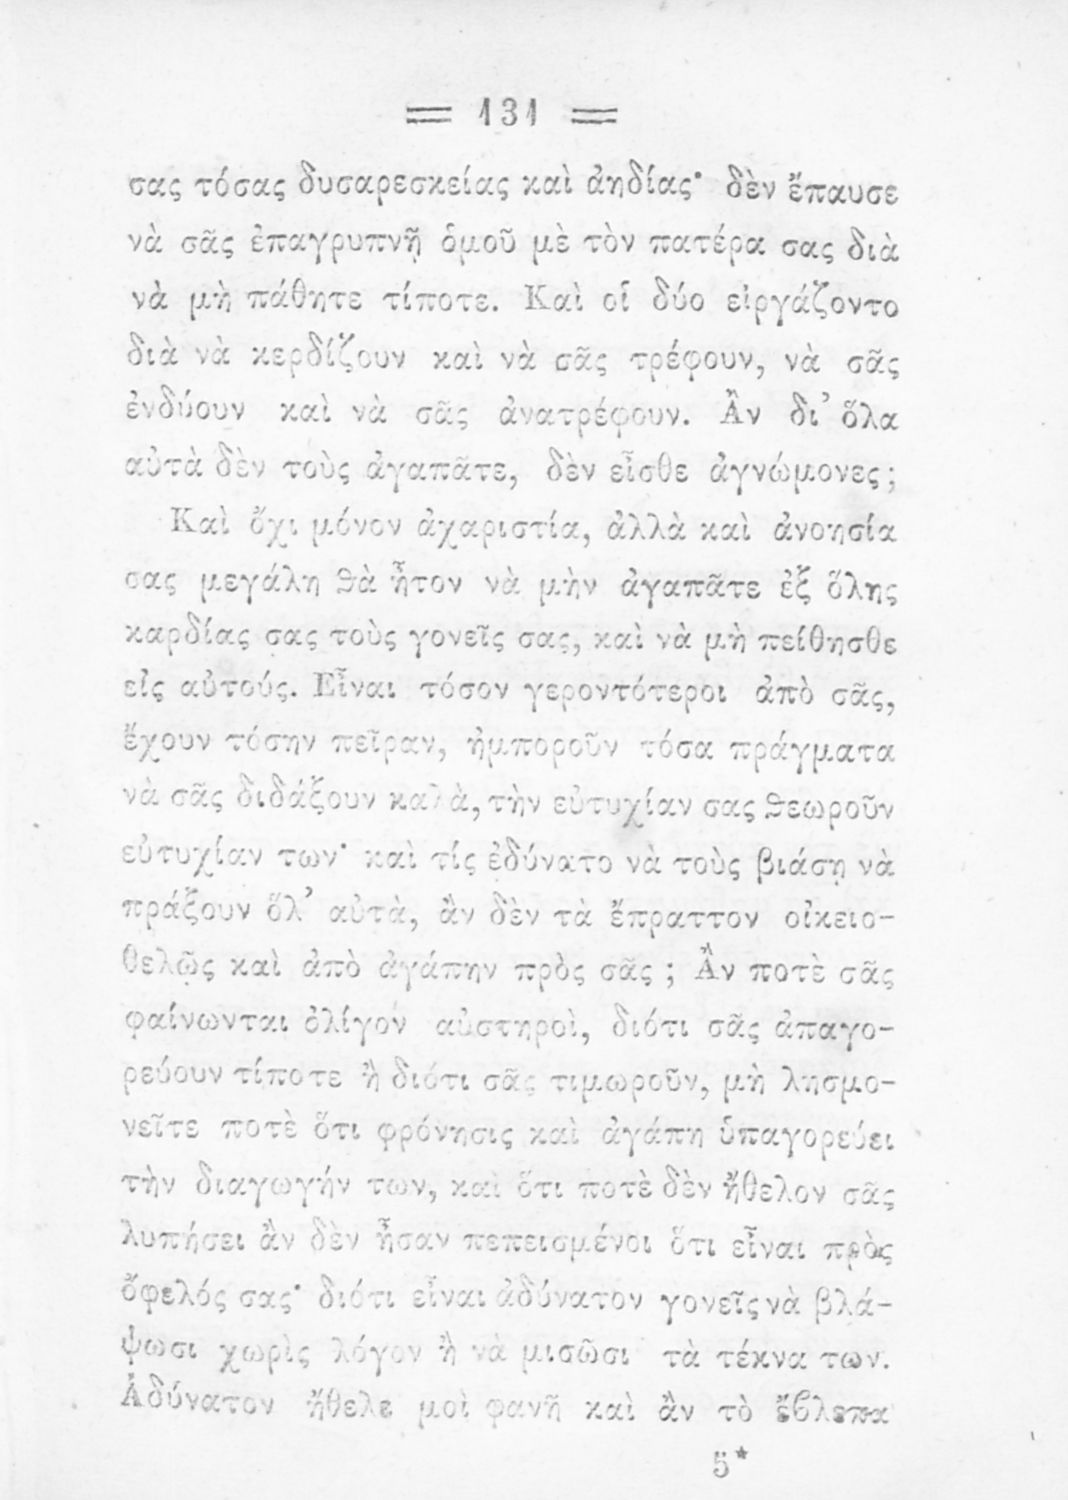 ═ 131 ═
σας τόσας δυσαρεσκείας καὶ ἀηδίας· δὲν ἔπαυσε
νὰ σᾶς ἐπαγρυπνῇ ὁμοῦ μὲ τὸν πατέρα σας διὰ
νὰ μὴ πάθητε τίποτε. Καὶ οἱ δύο εἰργάζοντο
διὰ νὰ κερδίζουν καὶ νὰ σᾶς τρέφουν, νὰ σᾶς
ἐνδύουν καὶ νὰ σᾶς ἀνατρέφουν. Ἂν δι’ ὅλα
αὐτὰ δὲν τοὺς ἀγαπᾶτε, δὲν εἶσθε ἀγνώμονες;
Καὶ ὄχι μόνον ἀχαριστία, ἀλλὰ καὶ ἀνοησία
σας μεγάλη θὰ ἦτον νὰ μὴν ἀγαπᾶτε ἐξ ὅλης
καρδίας σας τοὺς γονεῖς σας, καὶ νὰ μὴ πείθησθε
εἰς αὐτούς. Εἶναι τόσον γεροντότεροι ἀπὸ σᾶς,
ἔχουν τόσην πεῖραν, ἠμποροῦν τόσα πράγματα
νὰ σᾶς διδάξουν καλὰ, τὴν εὐτυχίαν σας θεωροῦν
εὐτυχίαν των· καὶ τίς ἐδύνατο νὰ τοὺς βιάσῃ νὰ
πράξουν ὅλ’ αὐτὰ, ἂν δὲν τὰ ἔπραττον οἰκειο-
θελῶς καὶ ἀπὸ ἀγάπην πρὸς σᾶς ; Ἂν ποτὲ σᾶς
φαίνωνται ὀλίγον αὐστηροὶ, διότι σᾶς ἀπαγο-
ρεύουν τίποτε ἢ διότι σᾶς τιμωροῦν, μὴ λησμο-
νεῖτε ποτὲ ὅτι φρόνησις καὶ ἀγάπη ὑπαγορεύει
τὴν διαγωγήν των, καὶ ὅτι ποτὲ δὲν ἤθελον σᾶς
λυπήσει ἂν δὲν ἦσαν πεπεισμένοι ὅτι εἶναι πρὸς
ὄφελός σας· διότι εἶναι ἀδύνατον γονεῖς νὰ βλά-
ψωσι χωρὶς λόγον ἢ νὰ μισῶσι τὰ τέκνα των.
Ἀδύνατον ἤθελε μοὶ φανῆ καὶ ἂν τὸ ἔβλεπα
5*